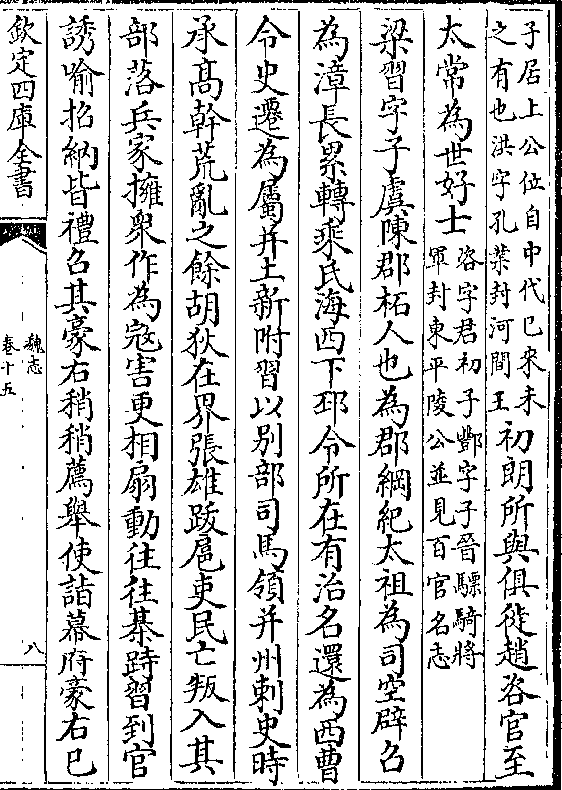 子居上公位自中代已來未
之有也洪字孔業封河間王
初朗所與俱徙趙咨官至
太常為世好士
咨字君初子酆字子晉驃騎將
軍封東平陵公並見百官名志
梁習字子虞陳郡柘人也為郡綱紀太祖為司空辟召
為漳長累轉乘氏海西下邳令所在有治名還為西曹
令史遷為屬并土新附習以別部司馬領并州刺史時
承高幹荒亂之餘胡狄在界張雄跋扈吏民亡叛入其
部落兵家擁衆作為寇害更相扇動往往棊跱習到官
誘喻招納皆禮召其豪右稍稍薦舉使詣幕府豪右已
欽定四庫全書
魏志
卷十五
八